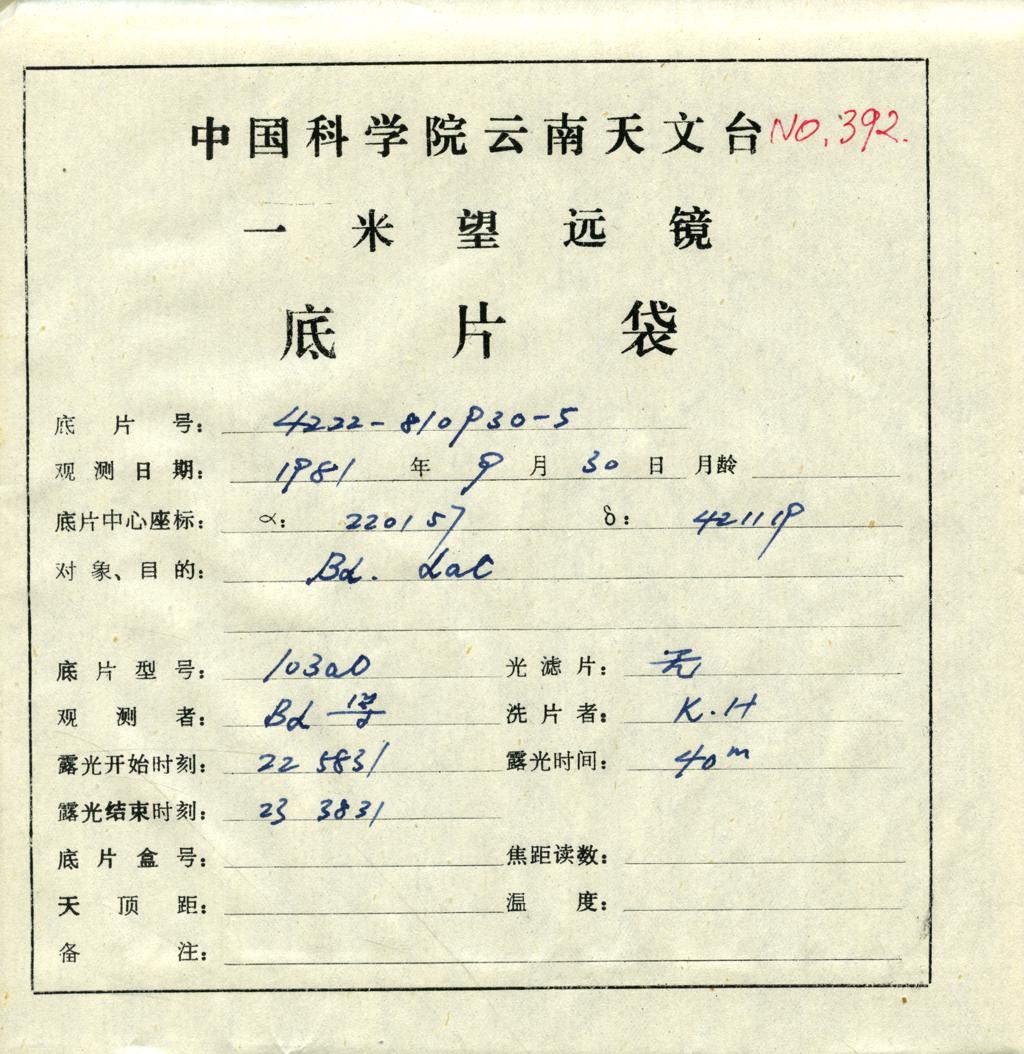 中国科学院云南天文台 NO.392.
一米望远镜
底片袋
底片号: 4222-810930-5
观测日期: 1981年9月30日 月龄
底片中心座标: α: 220157 δ: 421119
对象、目的: Bd. Lac
底片型号: 103aO 光滤片: 无
观测者: Bd 洗片者: K.H
露光开始时刻: 22 5831 露光时间: 40m
露光结束时刻: 23 3831
底片盒号: 焦距读数:
天顶距: 温度:
备注: